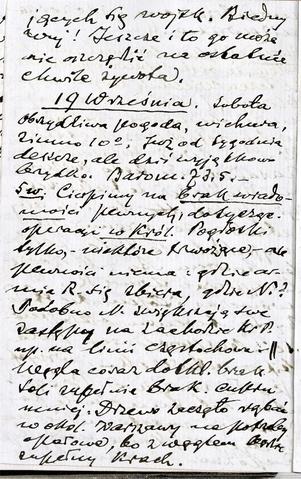 jących się wojsk. Biedny
kraj! Jeszcze i to go może
nie oszczędzić na ostatnie
chwile żywota.
19 Września. Sobota
Obrzydliwa pogoda, wichura,
zimno 10°. Już od tygodnia
deszcze, ale dziś wyjątkowo
brzydko. Barom. 735.—
Cierpimy na brak wiado-
mości pewnych, dotycząc.
operacji w Król. Pogłoski
tylko, niektóre trwożące, ale
pewności niema i gdzie ar-
mia R. się zbiera, gdzie N.?
Podobno N. zwiększają swe
zastępy na zachodzie K.P.
np. na linii Częstochowa—
Węgla coraz brak
soli zupełnie brak, cukru
mniej. Drzewo zaczęto rąbać
w okol. Warszawy na potrzeby
opałowe, bo z węglem
zupełny krach.